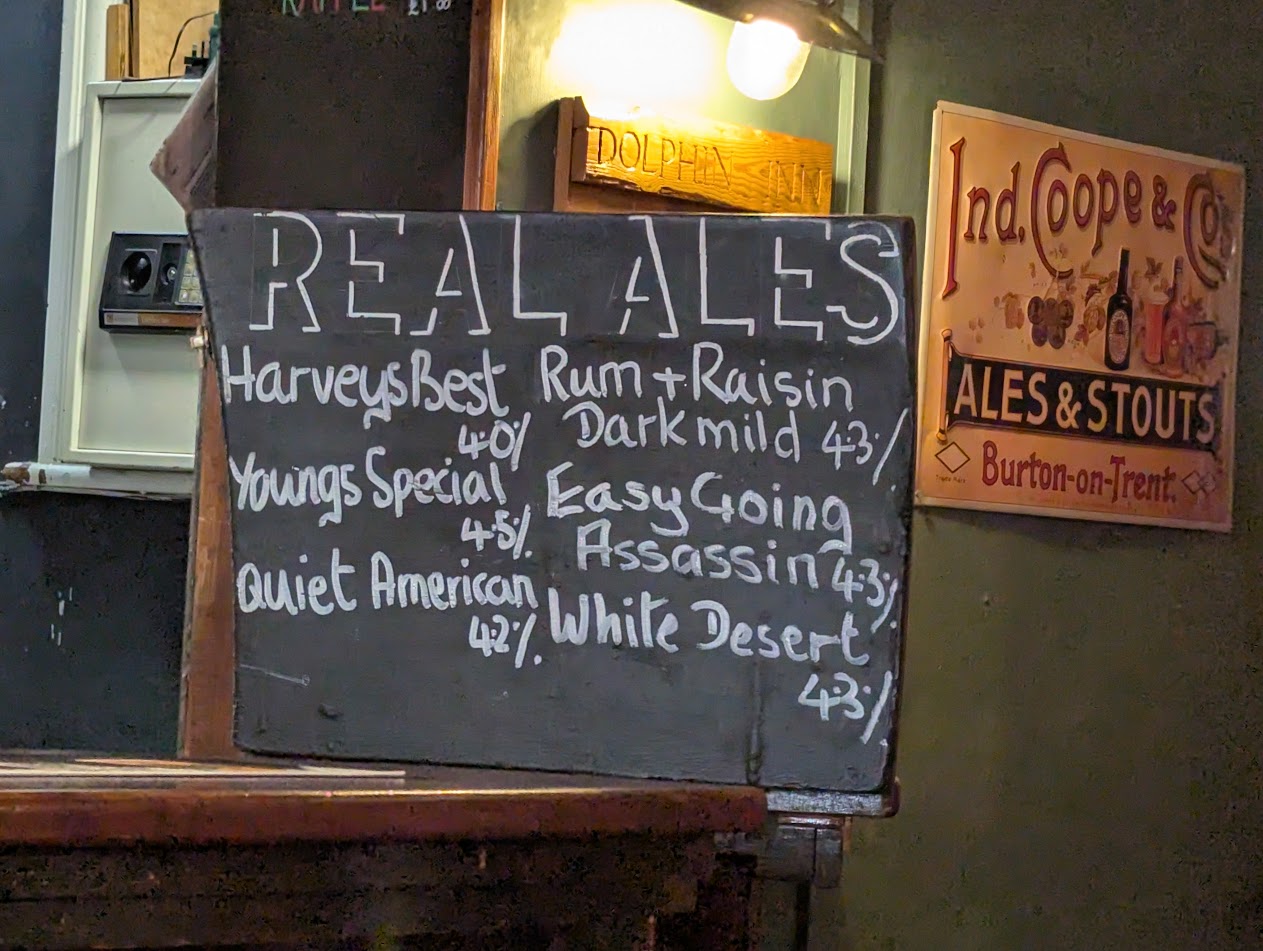 RAFFLE £1
DOLPHIN INN
REAL ALES
Harveys Best
4.0%
Youngs Special
4.5%.
Quiet American
4.2%.
Rum + Raisin
Dark mild 4.3%
Easy Going
Assassin 4.3%
White Desert
4.3%
Ind. Coope & Co's
ALES & STOUTS
Burton-on-Trent.